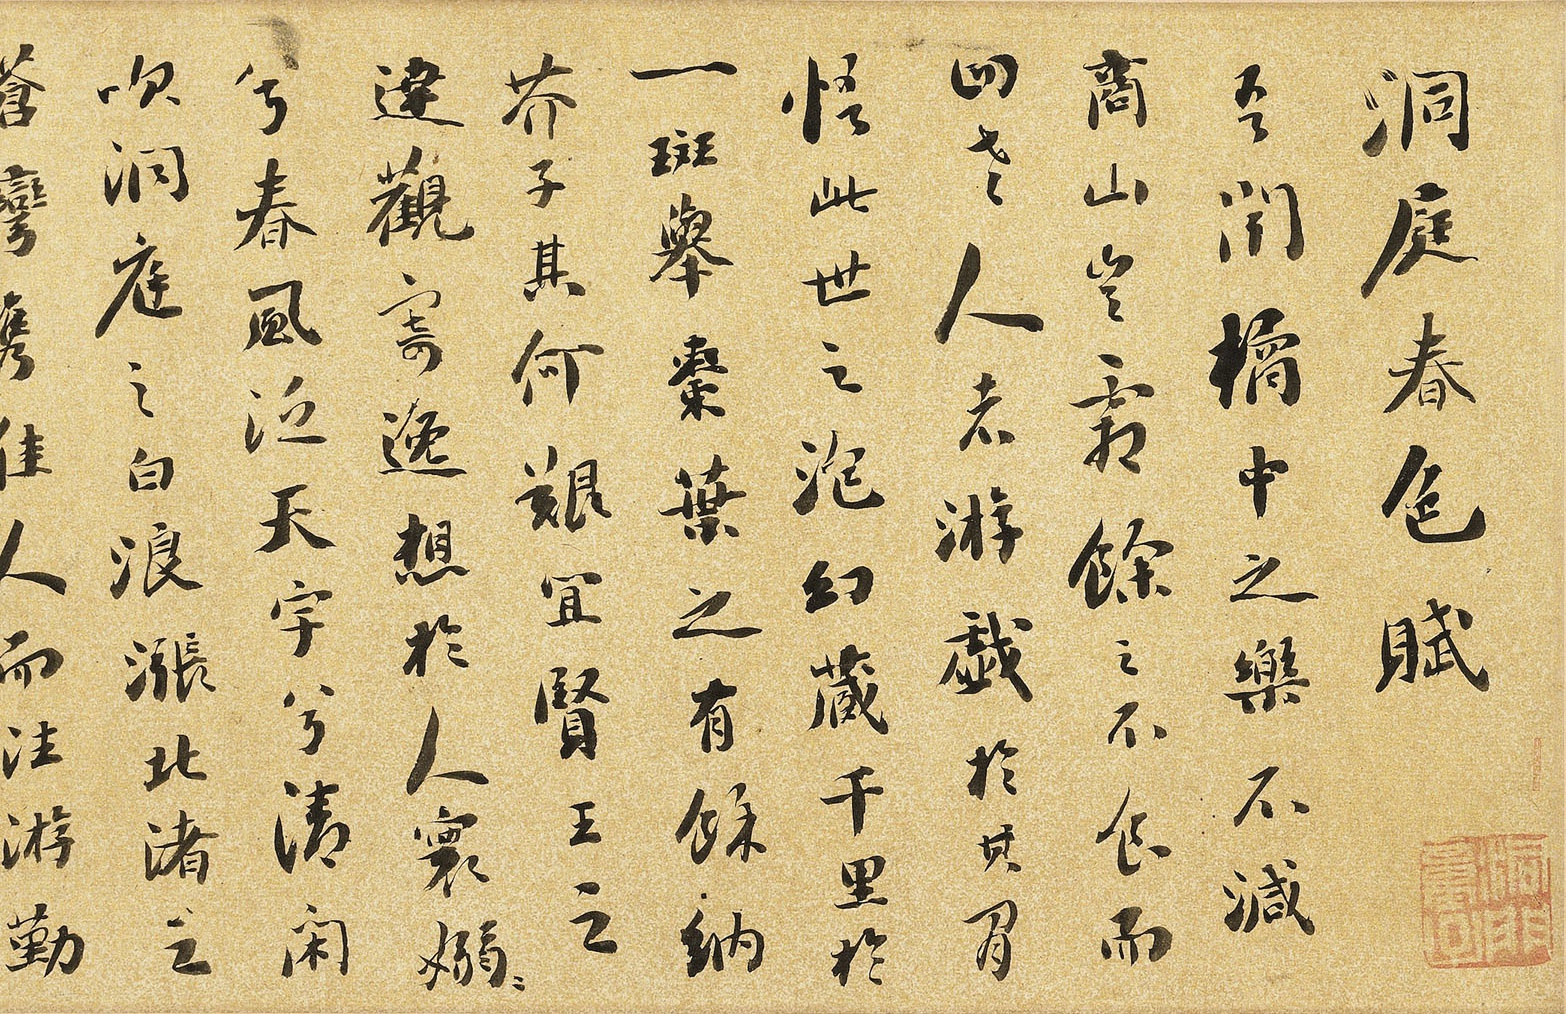 洞庭春色賦
吾聞橘中之樂不減
商山豈霜餘之不食而
四老人者游戲於其間
悟此世之泡幻藏千里於
一斑舉棗葉之有餘納
芥子其何艱宜賢王之
達觀寄逸想於人寰嫋〻
兮春風泛天宇兮清閑
吹洞庭之白浪漲北渚之
蒼灣攜佳人而往游勤